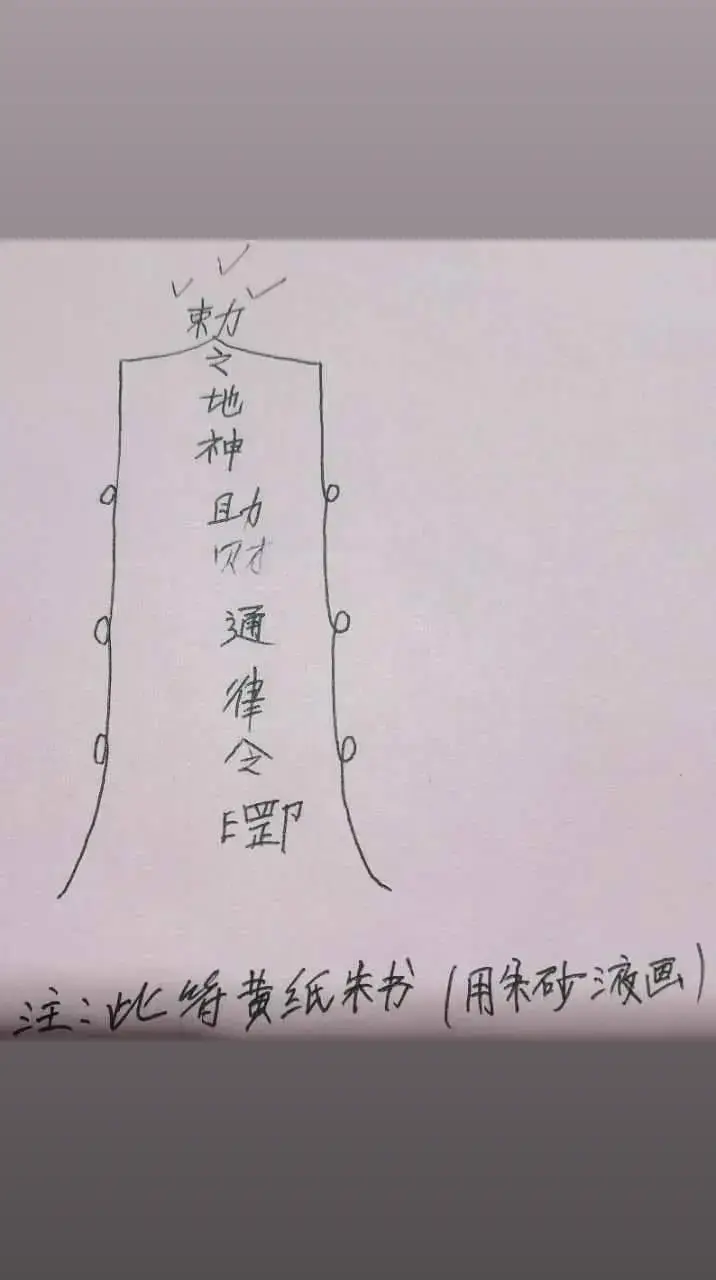 勅
令
地
神
助
财
通
律
令
注：此符黄纸朱书（用朱砂液画）